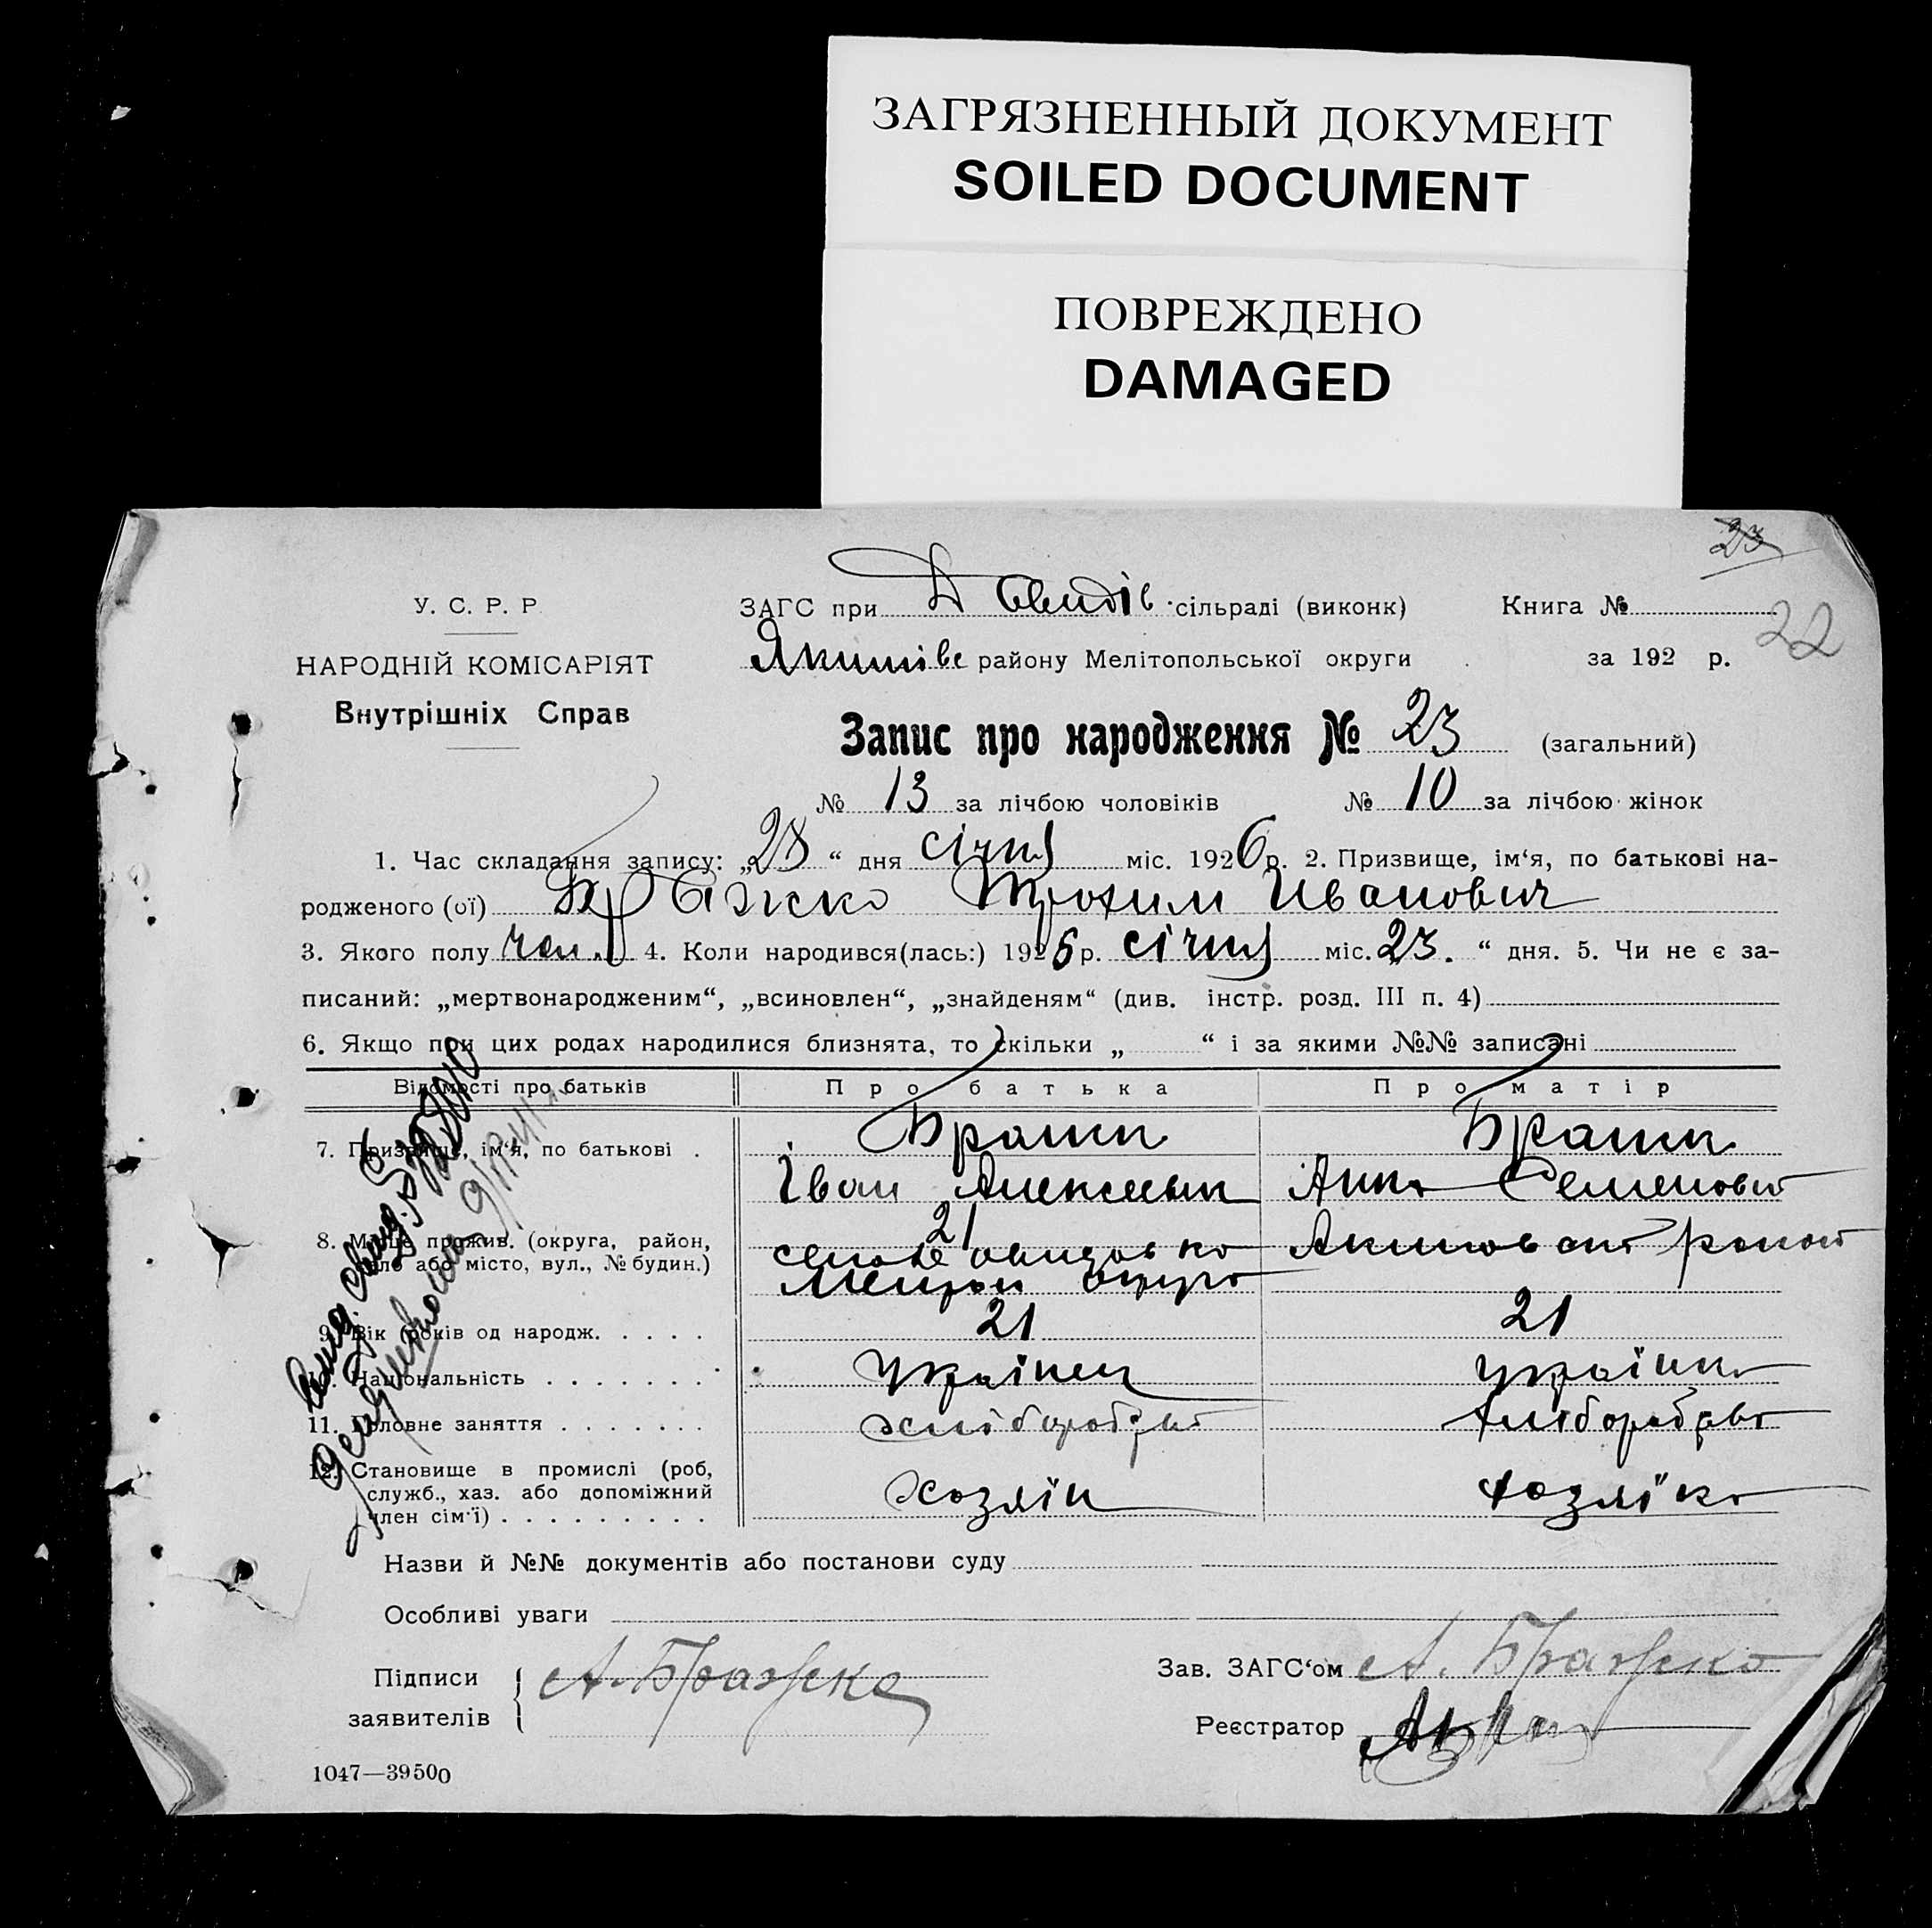 ЗАГРЯЗНЕННЫЙ ДОКУМЕНТ
SOILED DOCUMENT
ПОВРЕЖДЕНО
DAMAGED
23
22
У. С. Р. Р.
НАРОДНІЙ КОМІСАРІЯТ
Внутрішніх Справ
ЗАГС при Давидів. сільраді (виконк) Книга №
Якимівс району Мелітопольської округи за 192 р.
Запис про народження № 23 (загальний)
№ 13 за лічбою чоловіків № 10 за лічбою жінок
1. Час складання запису: „28“ дня січня міс. 1926 р. 2. Призвище, ім‘я, по батькові на-
родженого (ої) Бражко Трохим Иванович
3. Якого полу чол. 4. Коли народився(лась:) 1926 р. січня міс. „23.“ дня. 5. Чи не є за-
писаний: „мертвонародженим“, „всиновлен“, „знайденям“ (див. інстр. розд. III п. 4)
6. Якщо при цих родах народилися близнята, то скільки „ “ і за якими №№ записані
Відомості про батьків Про батька Про матір
7. Призвище, ім‘я, по батькові .
Іван Анна Семеновн
8. Місце прожив. (округа, район,
село або місто, вул., № будин.)
21
9. Вік (років од народж. . . . . 21 21
10. Національність . . . . . . . Українец українка
11. Головне заняття . . . . . . . хліборобство хліборобство
12. Становище в промислі (роб,
служб., хаз. або допоміжний
член сім‘ї) . . . . . . . . . Хозяїн хозяїка
Назви й №№ документів або постанови суду
Особливі уваги
Підписи
заявителів
А. Бражко
Зав. ЗАГС‘ом А. Бражко
Реєстратор
1047—39500